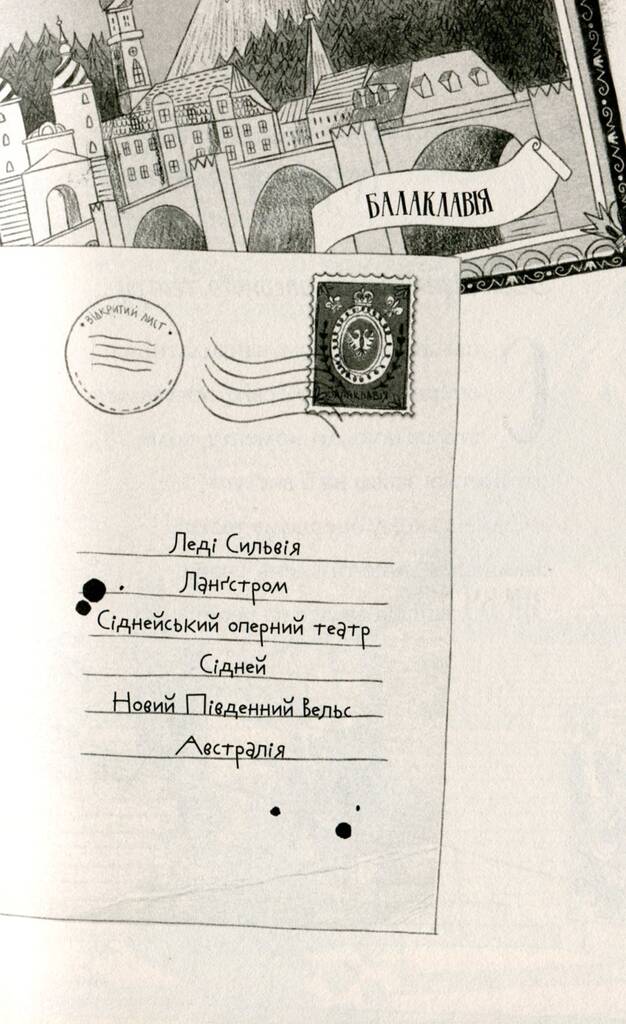 БАЛАКЛАВІЯ
ВІДКРИТИЙ ЛИСТ
БАЛАКЛАВІЯ
Леді Сильвія
Ланґстром
Сіднейський оперний театр
Сідней
Новий Південний Вельс
Австралія